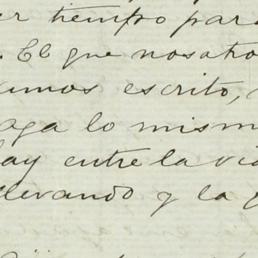 er tiempo para
. El que nosotro
amos escrito,
aga lo mism
hay entre la vid
levando y la